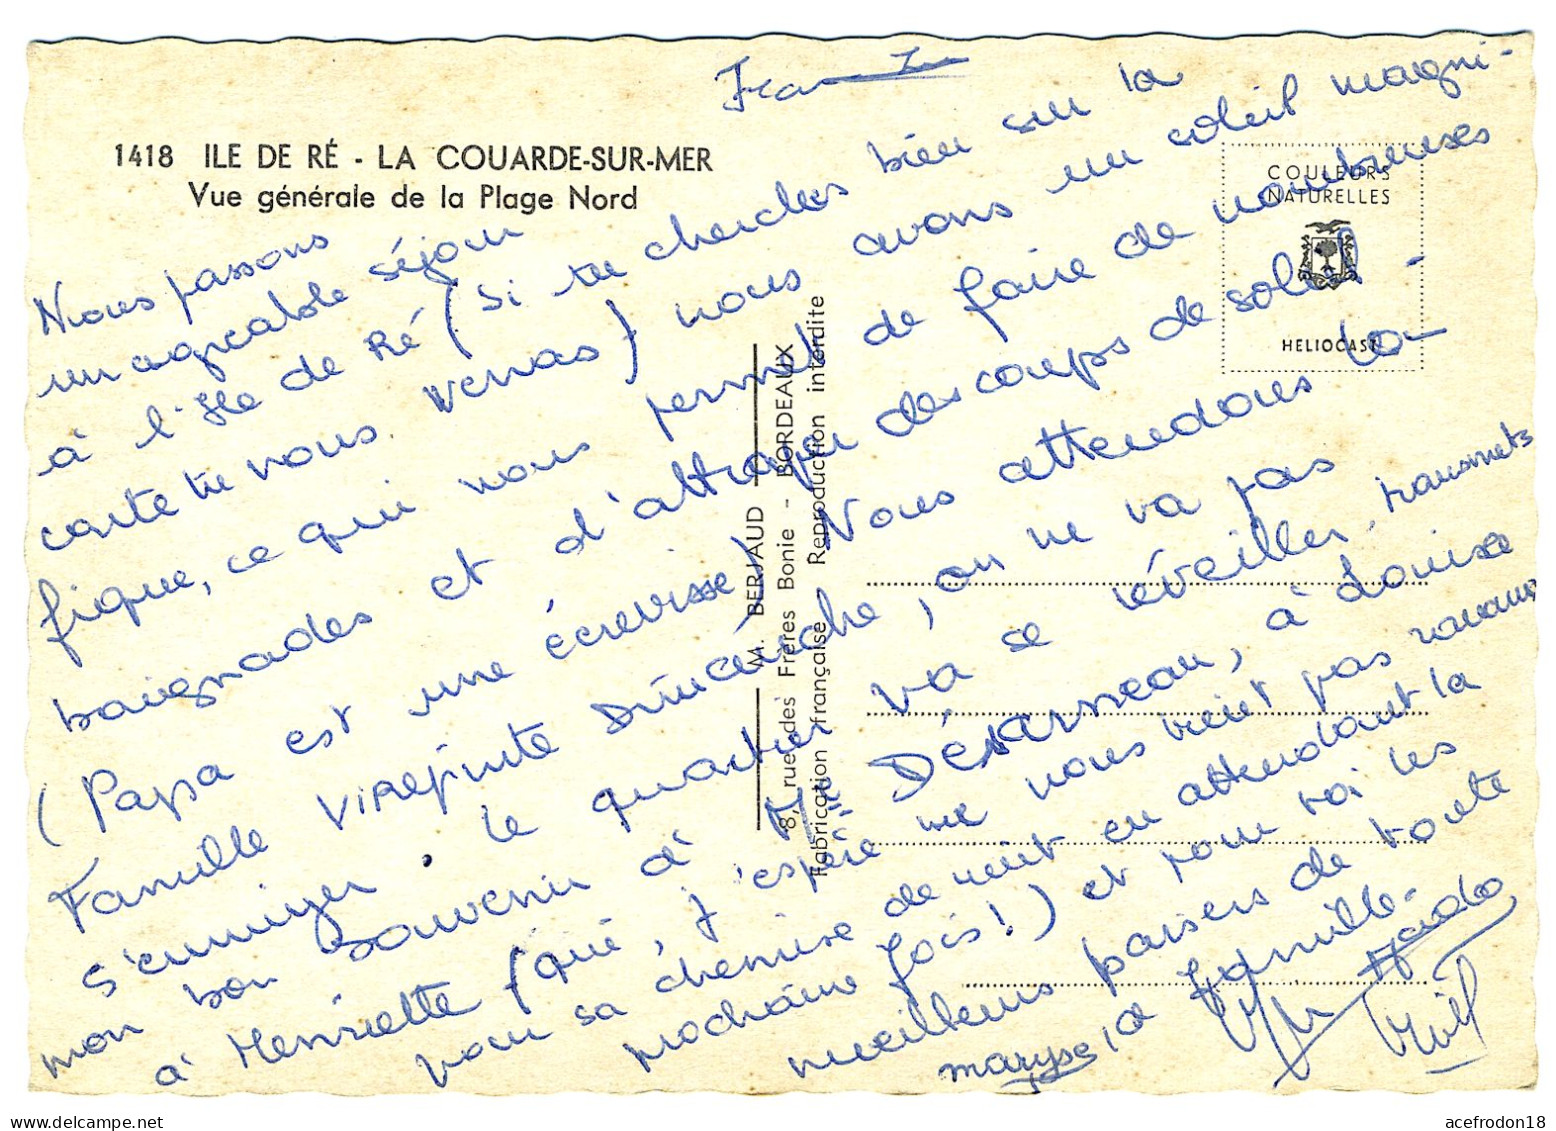 1418 ILE DE RÉ - LA COUARDE-SUR-MER
Vue générale de la Plage Nord
COULEURS
NATURELLES
HELIOCAST
M. BERJAUD
8, rue des Frères Bonie - BORDEAUX
Fabrication française Reproduction interdite
Nous passons
un agréable séjour
à l'Ile de Ré (si tu cherches bien sur la
carte tu nous verras) nous avons un soleil magni-
fique, ce qui nous permet de faire de nombreuses
baignades et d'attraper des coups de soleil.
(Papa est une écrevisse) Nous attendons la
Famille dimanche, on ne va pas
s'ennuyer. le quartier va se réveiller, transmets
mon bon souvenir à Mme à Louise
à Henriette (qui, j'espère ne nous vient pas
pour sa chemise de nuit en attendant la
prochaine fois!) et pour toi les
meilleurs baisers de toute
la famille.
maryse
acefrodon18